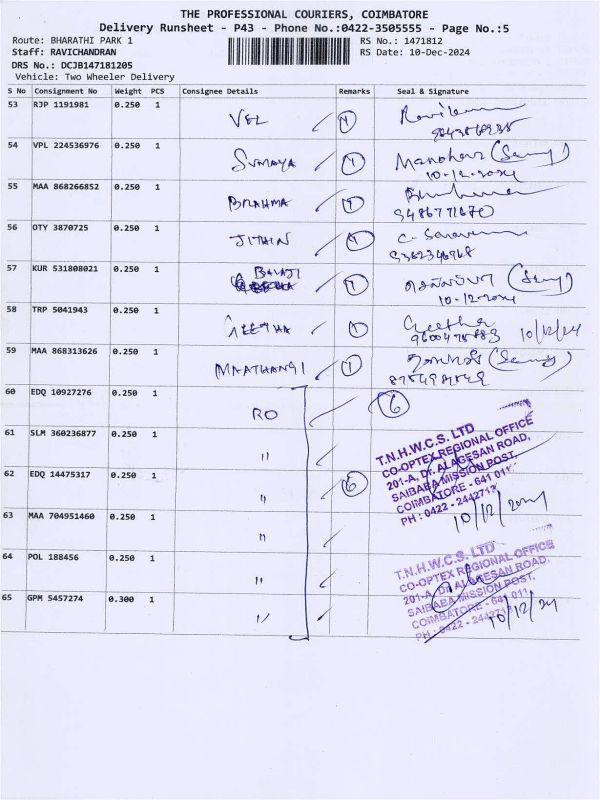 THE PROFESSIONAL COURIERS, COIMBATORE
Delivery Runsheet - P43 - Phone No.:0422-3505555 - Page No.:5
Route: BHARATHI PARK 1 RS No.: 1471812
Staff: RAVICHANDRAN RS Date: 10-Dec-2024
DRS No.: DCJB147181205
Vehicle: Two Wheeler Delivery
S No Consignment No Weight PCS Consignee Details Remarks Seal & Signature
53 RJP 1191981 0.250 1 VEL 1
54 VPL 224536976 0.250 1 SUMAYA 1 Manohar
10-12-2024
55 MAA 868266852 0.250 1 BRAHMA 1
9486771670
56 OTY 3870725 0.250 1 JITHIN 1 C. Saravanan
57 KUR 531808021 0.250 1 BALAJI 1
10-12-2024
58 TRP 5041943 0.250 1 GEETHA 1 Geetha 10/12/24
59 MAA 868313626 0.250 1 MAATHANGI 1
60 EDQ 10927276 0.250 1 RO 6
61 SLM 360236877 0.250 1 "
62 EDQ 14475317 0.250 1 " 6
63 MAA 704951460 0.250 1 "
64 POL 188456 0.250 1 "
65 GPM 5457274 0.300 1 "
T.N.H.W.C.S. LTD
CO-OPTEX REGIONAL OFFICE
201-A, Dr. ALAGESAN ROAD,
SAIBABA MISSION POST,
COIMBATORE - 641 011
PH : 0422 - 2442713
10/12/2024
T.N.H.W.C.S. LTD
CO-OPTEX REGIONAL OFFICE
201-A, Dr. ALAGESAN ROAD,
SAIBABA MISSION POST,
COIMBATORE - 641 011
PH : 0422 - 2442713
10/12/24